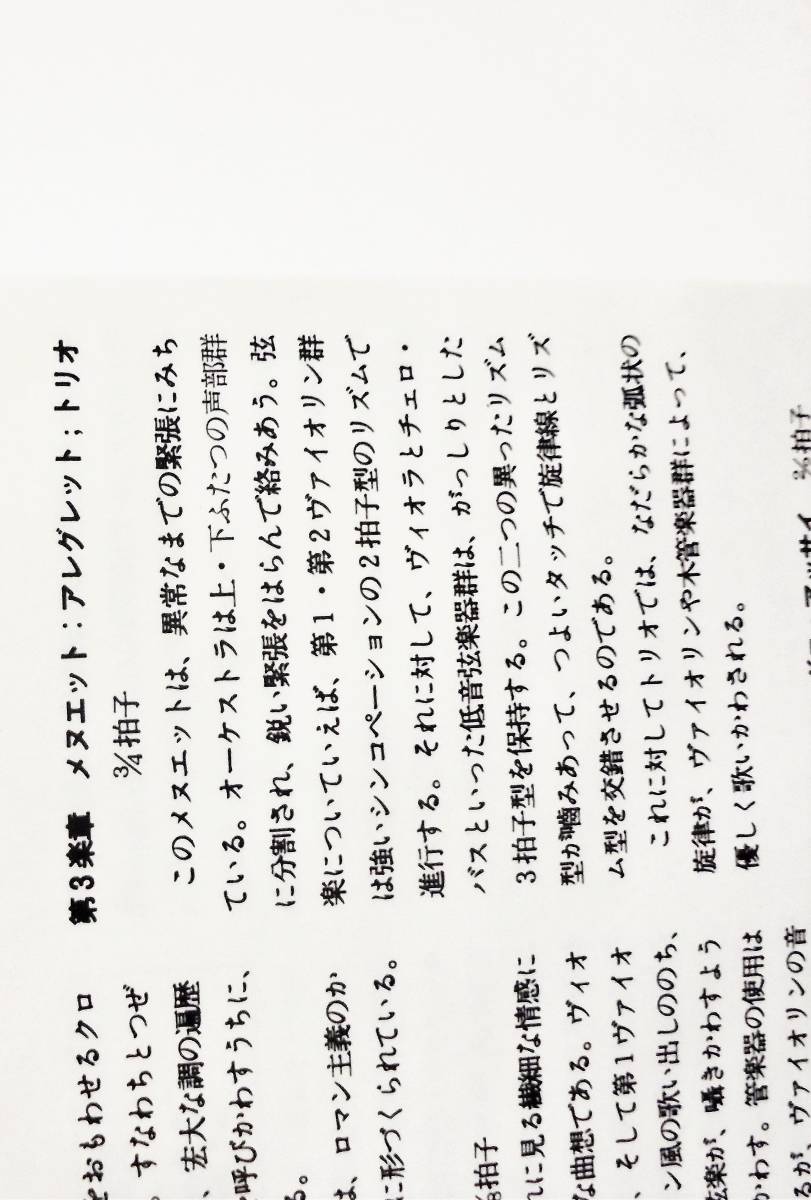 をおもわせるクロ
すなわちとつぜ
、宏大な調の遍歴
呼びかわすうちに、
る。
、ロマン主義のか
に形づくられている。
⅜拍子
に見る繊細な情感に
な曲想である。ヴィオ
、そして第1ヴァイオ
ン風の歌い出しののち、
弦楽が、囁きかわすよう
かわす。管楽器の使用は
るが、ヴァイオリンの音
第3楽章 メヌエット：アレグレット；トリオ
3/4拍子
このメヌエットは、異常なまでの緊張にみち
ている。オーケストラは上・下ふたつの声部群
に分割され、鋭い緊張をはらんで絡みあう。弦
楽についていえば、第1・第2ヴァイオリン群
は強いシンコペーションの2拍子型のリズムで
進行する。それに対して、ヴィオラとチェロ・
バスといった低音弦楽器群は、がっしりとした
3拍子型を保持する。この二つの異ったリズム
型が噛みあって、つよいタッチで旋律線とリズ
ム型を交錯させるのである。
これに対してトリオでは、なだらかな弧状の
旋律が、ヴァイオリンや木管楽器群によって、
優しく歌いかわされる。
アッサイ 2/4拍子